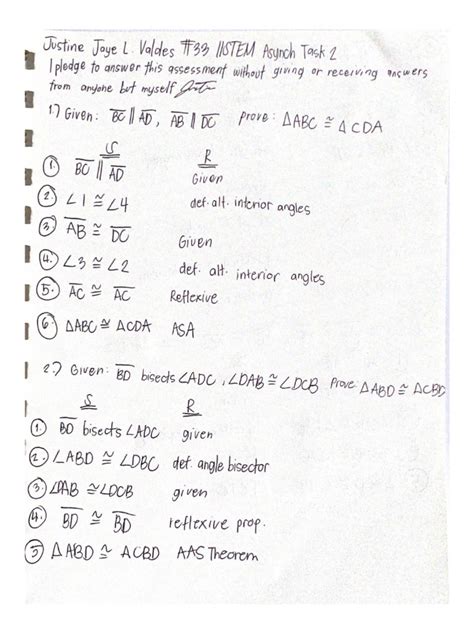 Justine Jaye L. Valdes #33 11STEM Asynch Task 2
I pledge to answer this assessment without giving or receiving answers
from anyone but myself
1.) Given: BC || AD, AB || DC prove: △ABC ≅ △CDA
S R
1. BC || AD Given
2. ∠1 ≅ ∠4 def. alt. interior angles
3. AB ≅ DC Given
4. ∠3 ≅ ∠2 def. alt. interior angles
5. AC ≅ AC Reflexive
6. △ABC ≅ △CDA ASA
2.) Given: BD bisects ∠ADC, ∠DAB ≅ ∠DCB Prove: △ABD ≅ △CBD
S R
1. BD bisects ∠ADC given
2. ∠ABD ≅ ∠DBC def. angle bisector
3. ∠DAB ≅ ∠DCB given
4. BD ≅ BD reflexive prop.
5 △ABD ≅ ACBD AAS Theorem